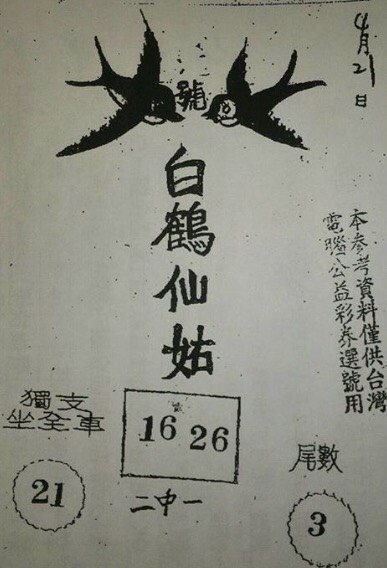 4月21日
號
白鶴仙姑
本參考資料僅供台灣
電腦公益彩券選號用
獨支
坐全車
16 26
二中一
尾數
21
3